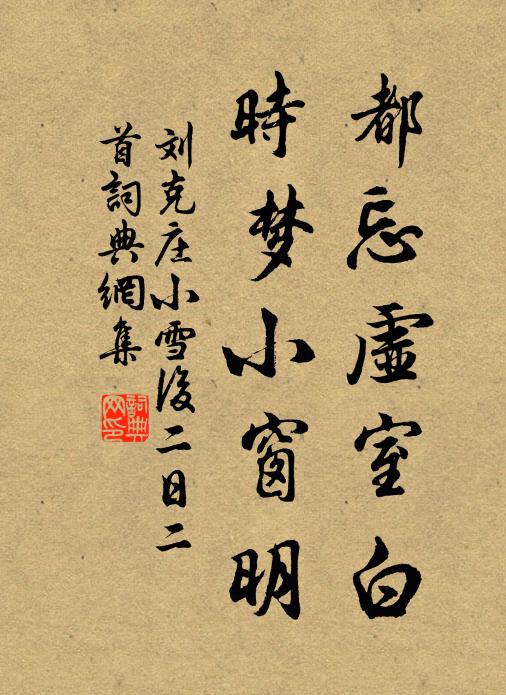 都忘虛室白
時梦小窗明
刘克庄小雪後二日二
首詞典網集
詞典网印